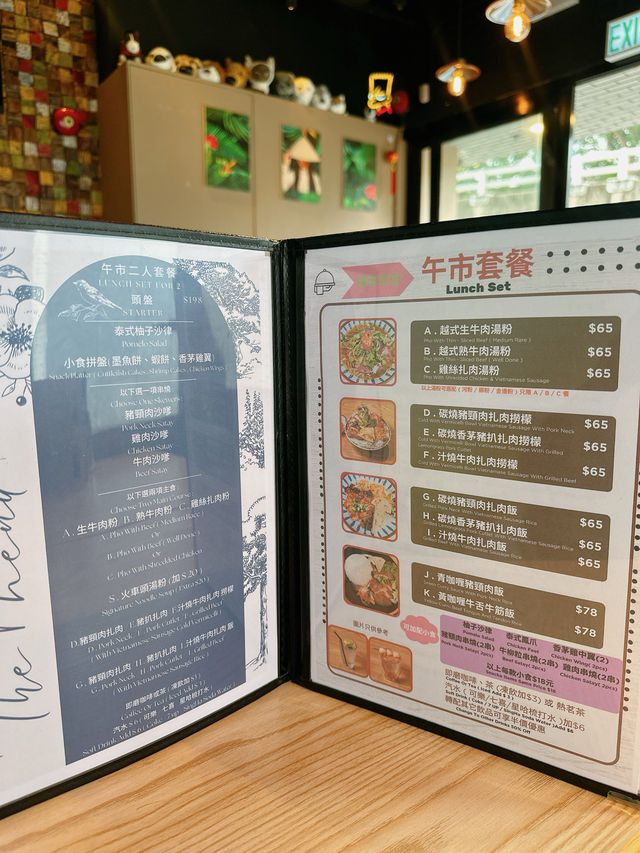 EXI
午市二人套餐
LUNCH SET FOR 2
$198
頭盤
STARTER
泰式柚子沙律
Pomelo Salad
小食拼盤(墨魚餅、蝦餅、香茅雞翼)
Snack Platter ( Cuttlefish Cakes , Shrimp Cakes , Chicken Wings )
以下選一項串燒
Choose One Skewers
豬頸肉沙嗲
Pork Neck Satay
雞肉沙嗲
Chicken Satay
牛肉沙嗲
Beef Satay
以下選兩項主食
Choose Two Main Course
A . 生牛肉粉 B . 熟牛肉粉 C . 雞絲扎肉粉
A . Pho With Beef ( Medium Rare )
Or
B . Pho With Beef ( Well Done )
Or
C . Pho With Shredded Chicken
S . 火車頭湯粉 ( 加 $ 20 )
Signature Noodle Soup ( Extra $20 )
D . 豬頸肉扎肉 E 豬扒扎肉 F 汁燒牛肉扎肉 撈檬
D . Pork Neck E . Pork Cutlet F . Grilled Beef
( With Vietnamese Sausage Cold Vermicelli )
G . 豬頸肉扎肉 H 豬扒扎肉 I 汁燒牛肉扎肉 飯
G . Pork Neck H . Pork Cutlet I . Grilled Beef
( With Vietnamese Sausage Rice )
即磨咖啡或茶 ( 凍飲加$3 )
Coffee Or Tea ( Iced Add $3 )
汽水 $ 6 ( 可樂 / 七喜 / 星哈梳打水 )
Soft Drink Add $ 6 ( Coke / 7 up / Singha Soda Water )
The Pheday
午市套餐
Lunch Set
A . 越式生牛肉湯粉 $65
Pho With Thin - Sliced Beef ( Medium Rare )
B . 越式熟牛肉湯粉 $65
Pho With Thin - Sliced Beef ( Well Done )
C . 雞絲扎肉湯粉 $65
Pho With Shredded Chicken & Vietnamese Sausage
D . 碳燒豬頸肉扎肉撈檬 $65
Cold With Vermicelli Bowl Vietnamese Sausage With Pork Neck
E . 碳燒香茅豬扒扎肉撈檬 $65
Cold With Vermicelli Bowl Vietnamese Sausage With Grilled
Lemongrass Pork Cutlet
F . 汁燒牛肉扎肉撈檬 $65
Cold With Vermicelli Bowl Vietnamese Sausage With Grilled Beef
G . 碳燒豬頸肉扎肉飯 $65
Grilled Pork Neck With Vietnamese Sausage Rice
H . 碳燒香茅豬扒扎肉飯 $65
Grilled Lemongrass Pork Cutlet With Vietnamese Sausage Rice
I . 汁燒牛肉扎肉飯 $65
Grilled Beef With Vietnamese Sausage Rice
J . 青咖喱豬頸肉飯 $78
Green Curry Sauce With Pork Neck Rice
K . 黃咖喱牛舌牛筋飯 $78
圖片只供參考
可加配小食
柚子沙律 泰式鳳爪 香茅雞中翼(2)
Pomelo Salad Chicken Feet Chicken Wing( 2pcs)
豬頸肉串燒(2串) 牛柳粒串燒(2串) 雞肉串燒(2串)
Pork Neck Satay( 2pcs) Beef Satay( 2pcs) Chicken Satay( 2pcs)
以上每款小食$18元
Snacks Items Same Price $18
即磨咖啡、茶 (凍飲加$3) 或 熱茗茶
Coffee Or Tea ( Iced Add $ 3 )
汽水 ( 可樂/七喜/星哈梳打水 )加$6
Soft Drink ( Coke / 7 UP / Singha Soda Water )Add $6
轉配其它飲品可享半價優惠
Change To Other Drinks 50% Off